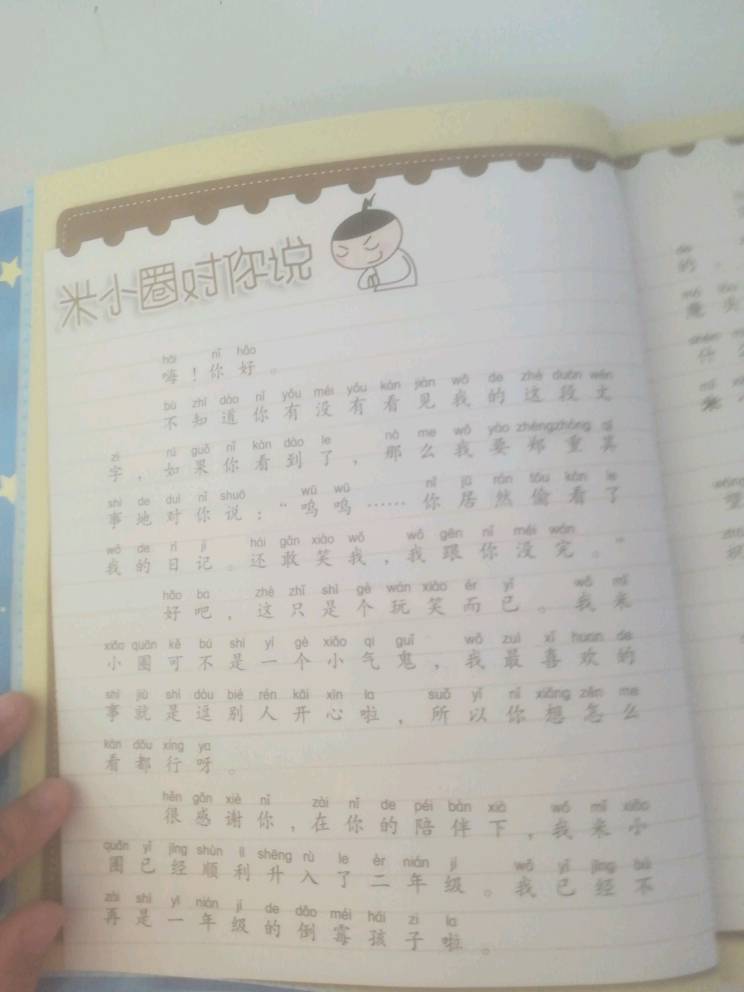 米小圈对你说
hāi nǐ hǎo
嗨！你好。
bù zhī dào nǐ yǒu méi yǒu kàn jiàn wǒ de zhè duàn wén
不知道你有没有看见我的这段文
zì rú guǒ nǐ kàn dào le nà me wǒ yào zhèngzhòng qí
字，如果你看到了，那么我要郑重其
shì de duì nǐ shuō wū wū nǐ jū rán tōu kàn le
事地对你说：“呜呜……你居然偷看了
wǒ de rì jì hái gǎn xiào wǒ wǒ gēn nǐ méi wán
我的日记。还敢笑我，我跟你没完。”
hǎo ba zhè zhǐ shì gè wán xiào ér yǐ wǒ mǐ
好吧，这只是个玩笑而已。我米
xiǎo quān kě bú shì yí gè xiǎo qì guǐ wǒ zuì xǐ huan de
小圈可不是一个小气鬼，我最喜欢的
shì jiù shì dòu bié rén kāi xīn la suǒ yǐ nǐ xiǎng zěn me
事就是逗别人开心啦，所以你想怎么
kàn dōu xíng ya
看都行呀。
hěn gǎn xiè nǐ zài nǐ de péi bàn xià wǒ mǐ xiǎo
很感谢你，在你的陪伴下，我米小
quān yǐ jīng shùn lì shēng rù le èr nián jí wǒ yǐ jīng bú
圈已经顺利升入了二年级。我已经不
zài shì yī nián jí de dǎo méi hái zi la
再是一年级的倒霉孩子啦。
de
的
什